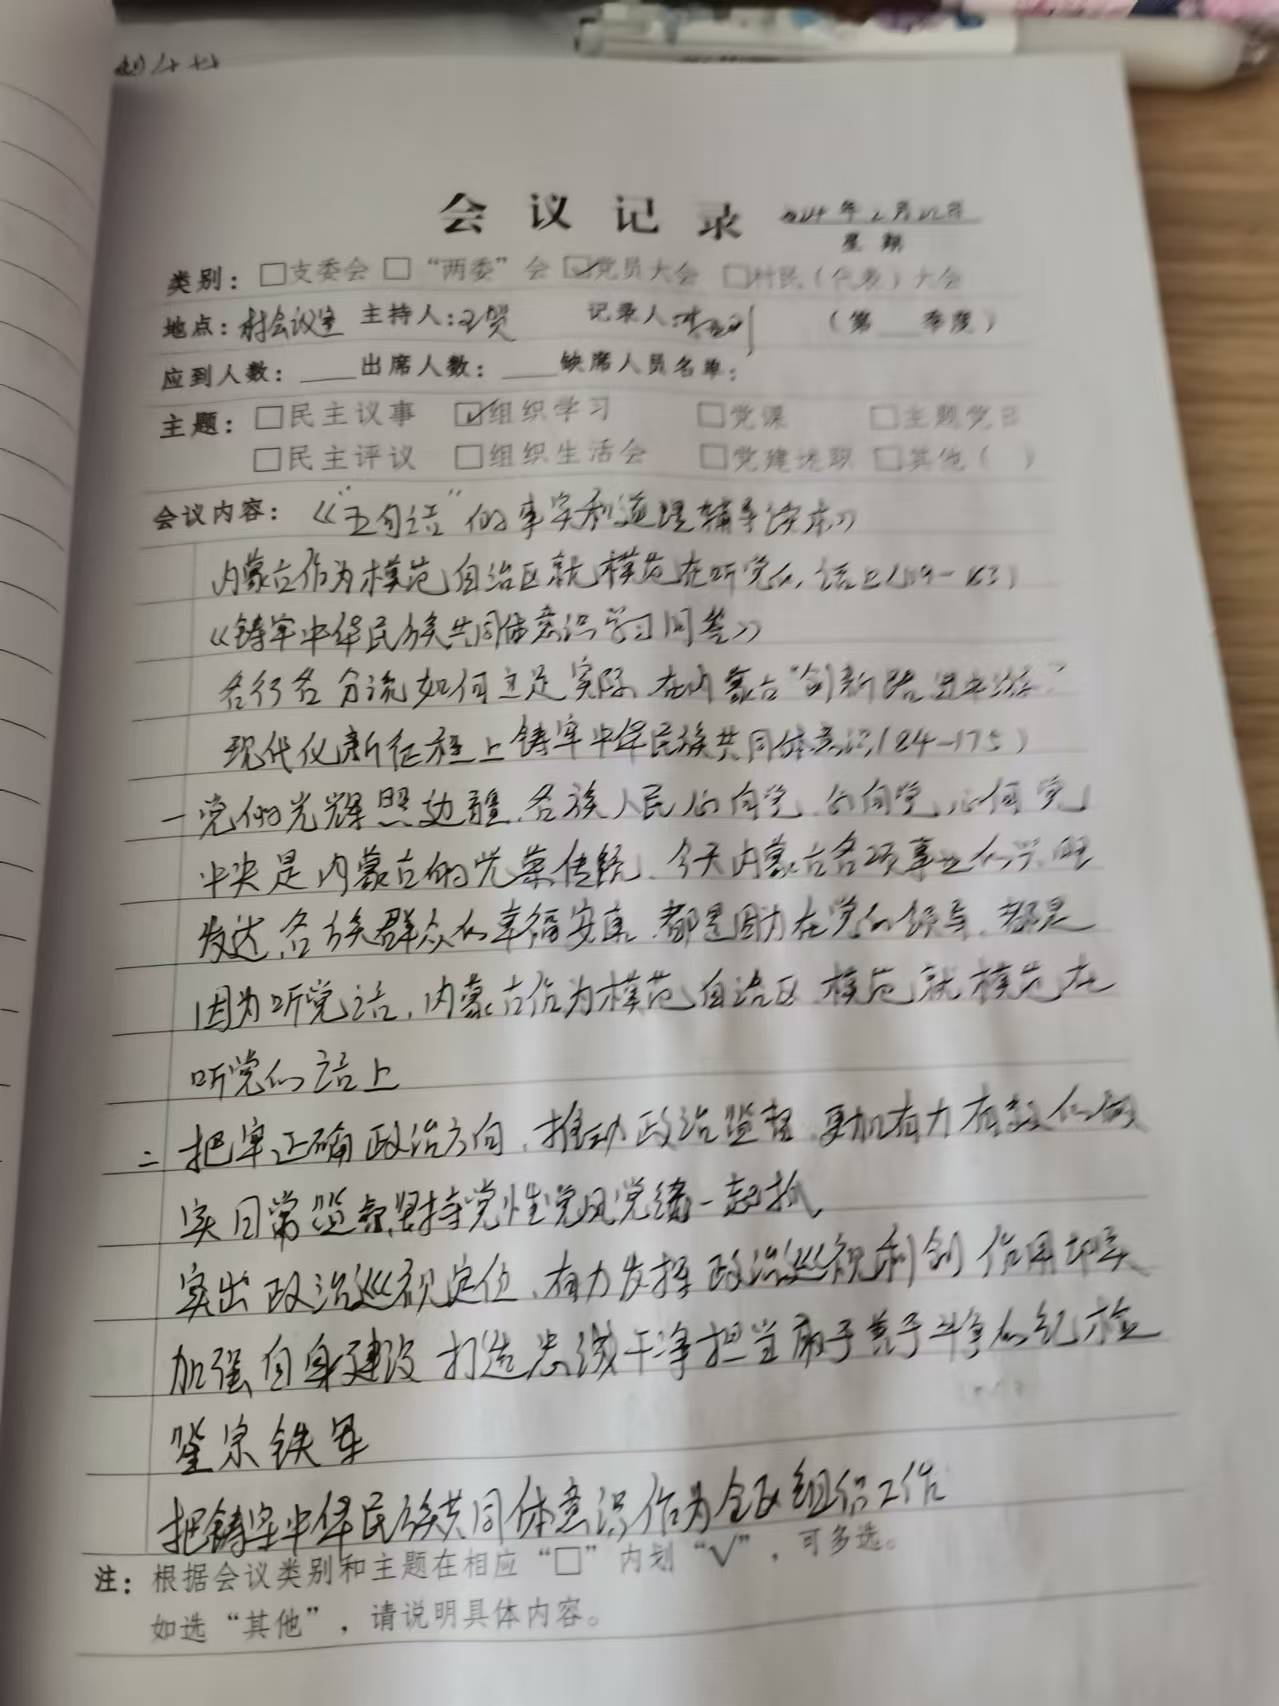 会议记录 年2月22日
星期
类别：□支委会 □“两委”会 ☑党员大会 □村民（代表）大会
地点：村会议室 主持人： 记录人： （第 季度）
应到人数： 出席人数： 缺席人员名单：
主题：□民主议事 ☑组织学习 □党课 □主题党日
□民主评议 □组织生活会 □党建述职 □其他（ ）
会议内容：《“五句话”的事实和道理辅导读本》
内蒙古作为模范自治区就模范在听党的话上
《铸牢中华民族共同体意识学习问答》
各行各 如何立足实际，在内蒙古“创新
现代化新征程上铸牢中华民族共同体意识(84-175)
一党的光辉照边疆，各族人民心向党，心向党，心向党
中央是内蒙古的光荣传统，今天内蒙古各项事业的兴旺
发达，各族群众的幸福安康，都是因为在党的领导，都是
因为听党话，内蒙古作为模范自治区 模范就模范在
听党的话上
二把牢正确政治方向，推动政治监督，更加有力有效的做
实日常监督坚持党性党风党纪一起抓，
突出政治巡视定位，有力发挥政治巡视利剑作用切实
加强自身建设打造忠诚干净担当敢于善于斗争的纪检
监察铁军
把铸牢中华民族共同体意识作为全区组织工作
注：根据会议类别和主题在相应“□”内划“√”，可多选。
如选“其他”，请说明具体内容。